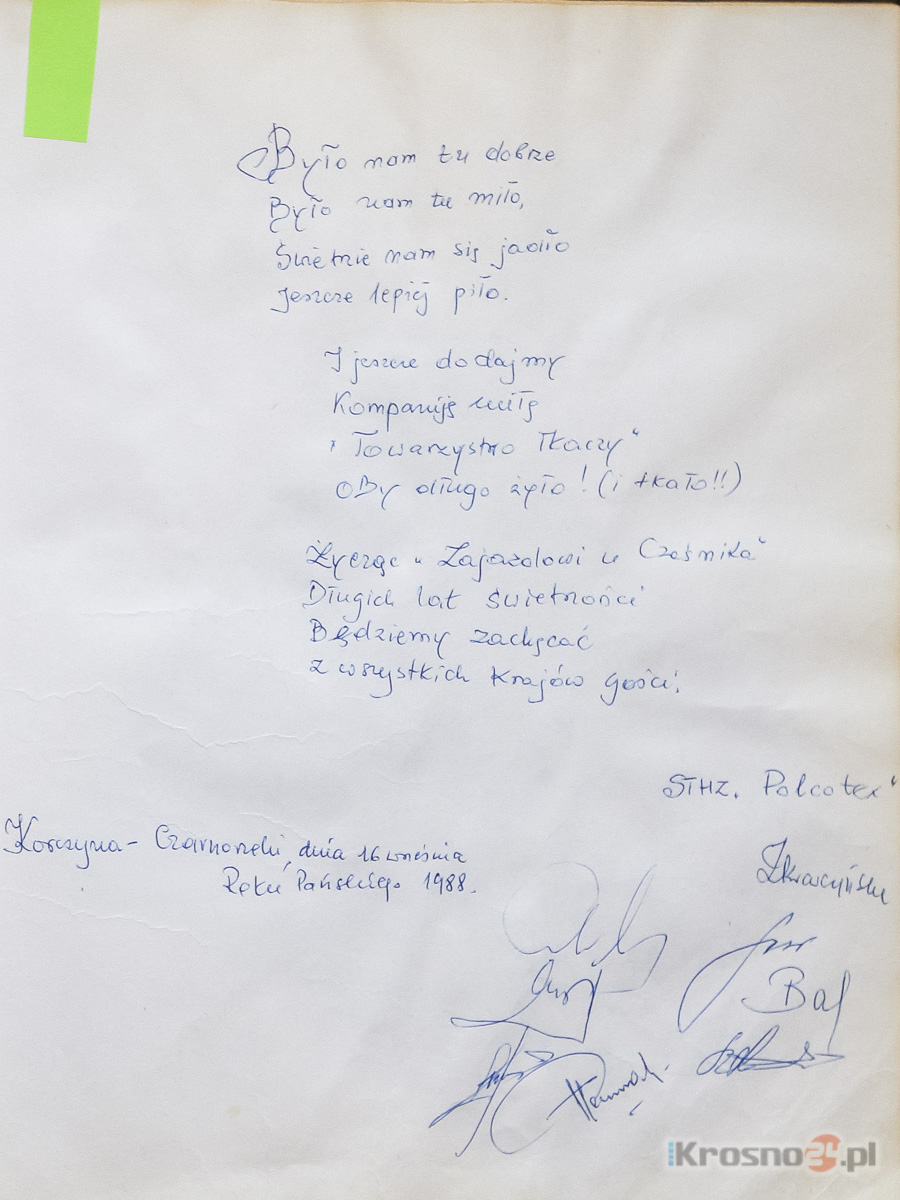 Było nam tu dobrze
Było nam tu miło,
Świetnie nam się jadło
Jeszcze lepiej piło.
I jeszcze dodajmy
Kompaniję miłą
"Towarzystwo Tkaczy"
Oby długo żyło! (i tkało!!)
Życząc "Zajazdowi u Cześnika"
Długich lat świetności
Będziemy zachęcać
z wszystkich krajów gości.
STHZ. Polcotex"
Korczyna - Czarnorzeki, dnia 16 września
Roku Pańskiego 1988.
Bal
iKrosno24.pl